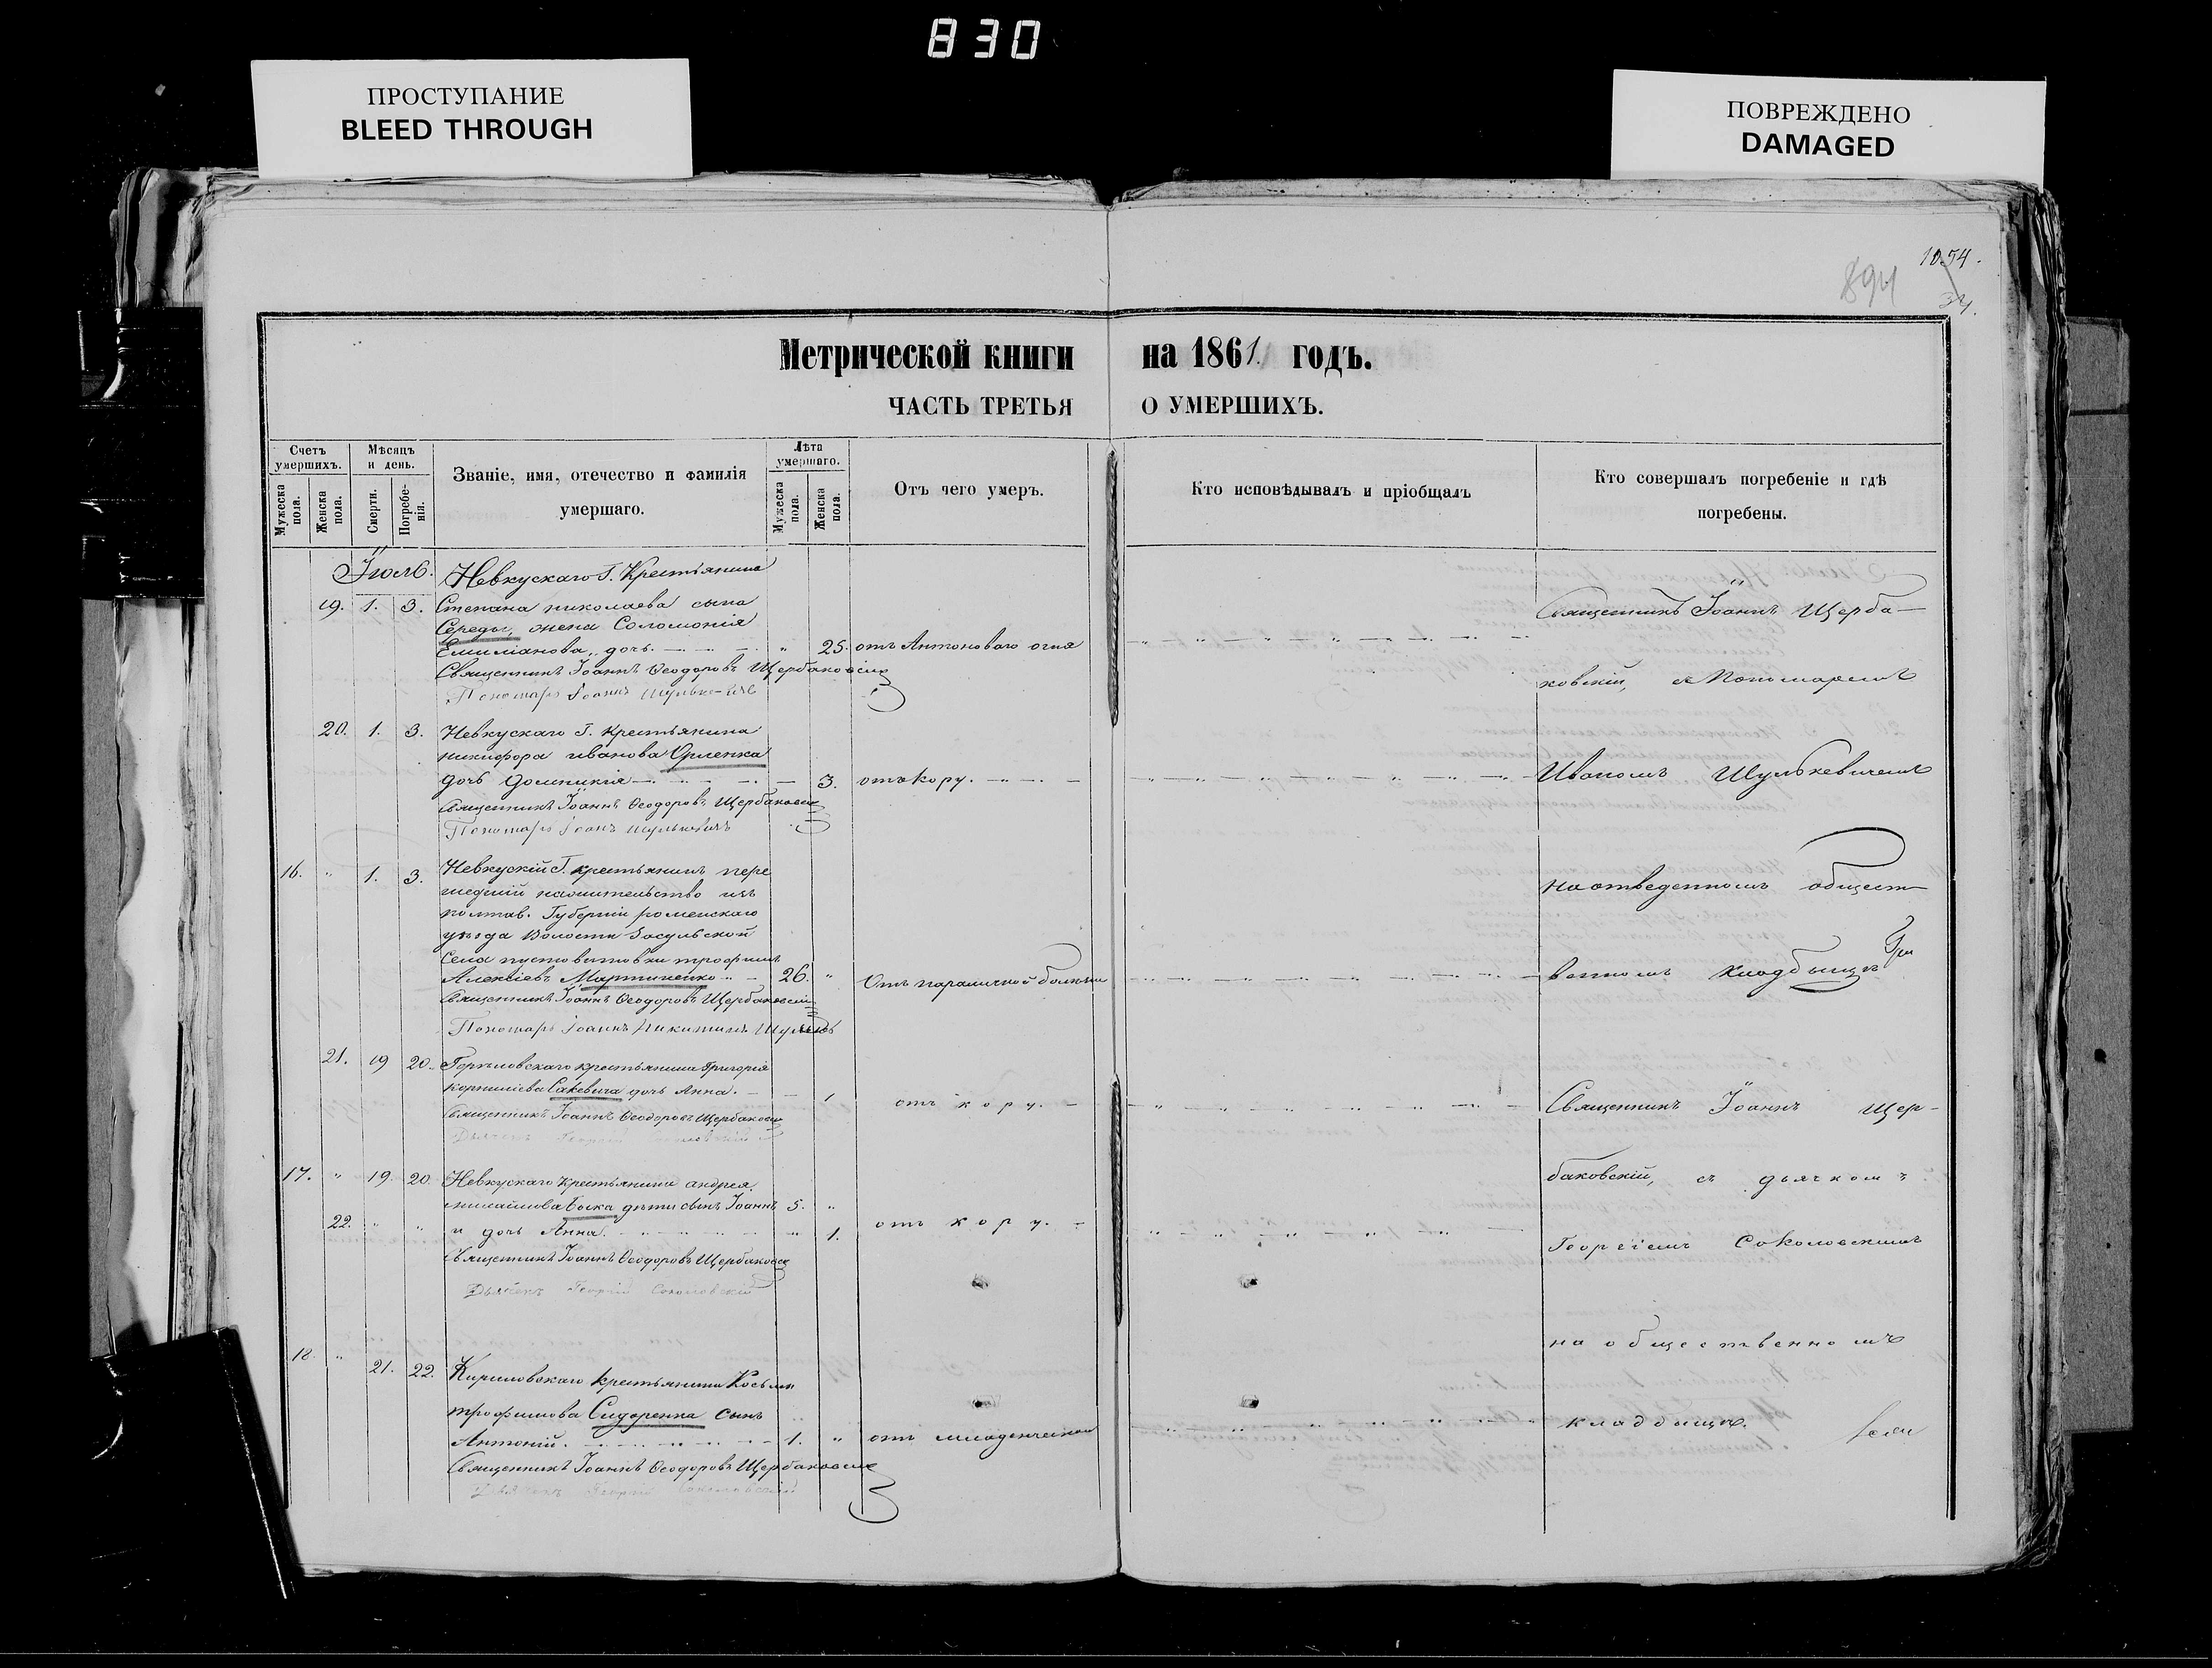 830
ПРОСТУПАНИЕ
BLEED THROUGH
ПОВРЕЖДЕНО
DAMAGED
1054.
894
34.
Метрической книги на 1861. годъ.
ЧАСТЬ ТРЕТЬЯ О УМЕРШИХЪ.
Счетъ умершихъ.
Мужеска пола.
Женска пола.
Мѣсяцъ и день.
Смерти.
Погребенія.
Званіе, имя, отечество и фамилія умершаго.
Лѣта умершаго.
Мужеска пола.
Женска пола.
Отъ чего умеръ.
Кто исповѣдывалъ и пріобщалъ
Кто совершалъ погребеніе и гдѣ погребены.
Іюль. Невкускаго Г. Крестьянина
19. 1. 3. Степана николаева сына
Середы, жена Соломонія
Емиліанова, дочь. " 25. отъ Антоноваго огня
Священникъ Іоаннъ Ѳеодоровъ Щербаковскій
Пономарь Іоаннъ Шулькевичъ
20. 1. 3. Невкускаго Г. крестьянина
никифора иванова
дочь Домникія 3. отъ кору.
Священникъ Іоаннъ Ѳеодоровъ Щербаковскій
Пономарь Іоаннъ Шулькевичъ
16. " 1. 3. Невкускій Г. крестьянинъ пере
шедшій на жительство изъ
полтав. Губерніи роменскаго
уѣзда Волости Засульской
Села пустовитовки трофимъ
Алексіевъ Мартиненко 26. " Отъ параличной болѣзни
Священникъ Іоаннъ Ѳеодоровъ Щербаковскій
Пономарь Іоаннъ Никитинъ
21. 19 20. крестьянина Григорія
корниліева Сакевича дочь Анна. 1 отъ кору.
Священникъ Іоаннъ Ѳеодоровъ Щербаковскій
Дьячекъ Георгій Соколовскій
17. " 19. 20. Невкускаго крестьянина андрея
михайлова дѣти сынъ Іоаннъ 5. "
22. " " и дочь Анна. " 1. отъ кору.
Священникъ Іоаннъ Ѳеодоровъ Щербаковскій
Дьячекъ Георгій Соколовскій
18. " 21. 22. Кириловскаго крестьянина Косьмы
трофимова Сидоренка сынъ
Антоній. 1. " отъ младенческой
Священникъ Іоаннъ Ѳеодоровъ Щербаковскій
Дьячекъ Георгій Соколовскій
Священникъ Іоаннъ Щерба-
ковскій, съ Пономаремъ
Иваномъ Шулькевичемъ
на отведенномъ общест-
венномъ кладбищѣ
Священникъ Іоаннъ Щер-
баковскій, съ дьячкомъ
Георгіемъ Соколовскимъ
на общественномъ
кладбищѣ.